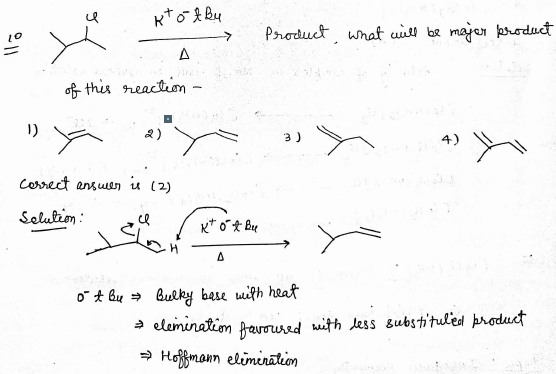 10
Cl
K⁺ O⁻ t Bu
Δ
Product, what will be major product
of this reaction -
1)
2)
3)
4)
Correct answer is (2)
Solution:
Cl
H
K⁺ O⁻ t Bu
Δ
O⁻ t Bu ⇒ Bulky base with heat
⇒ elemination favoured with less substituted product
⇒ Hoffmann elimination